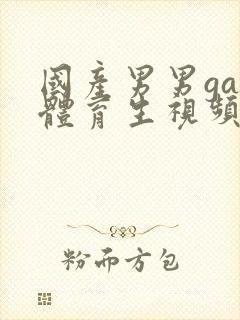 國產男男ga
體育生視頻
粉而方包